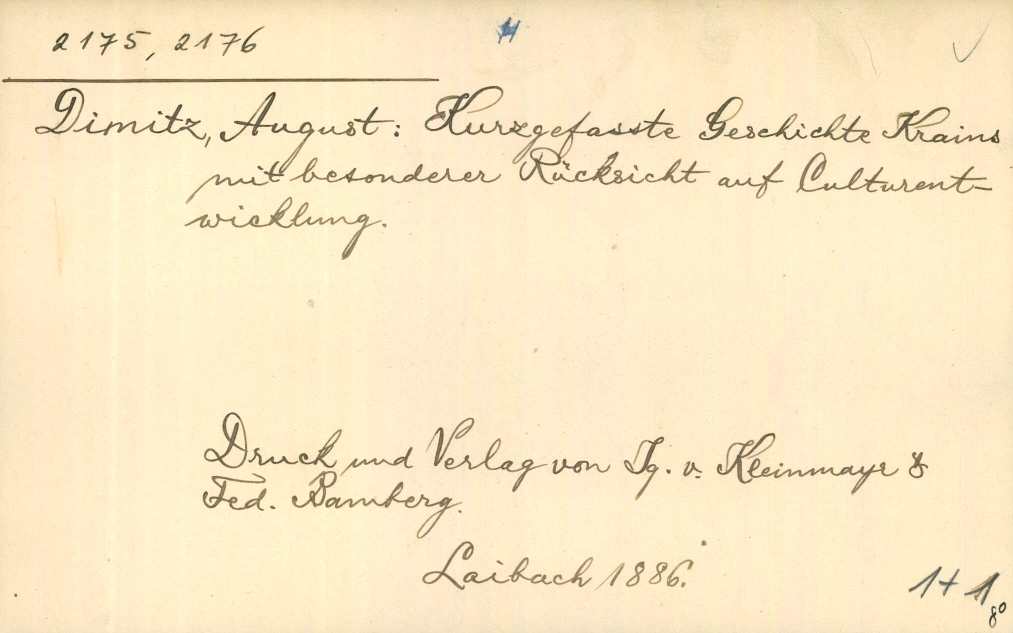 2175, 2176
Dimitz, August: Kurzgefasste Geschichte Krains
mit besonderer Rücksicht auf Culturent-
wicklung.
Druck und Verlag von Ig. v. Kleinmayr &
Fed. Bamberg.
Laibach 1886.
1+1
8°